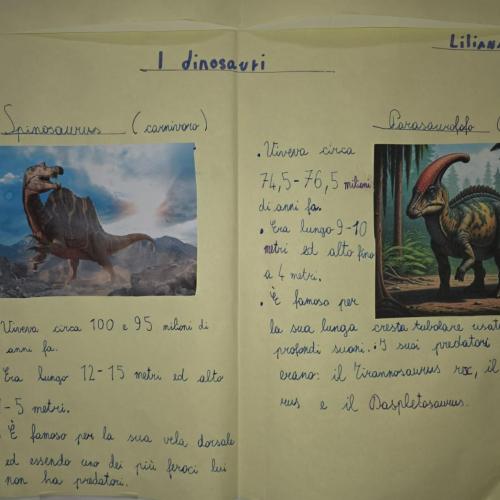 I dinosauri
Spinosaurus (carnivoro)
Viveva circa 100 e 95 milioni di
anni fa.
Era lungo 12-15 metri ed alto
5 metri.
È famoso per la sua vela dorsale
ed essendo uno dei più feroci lui
non ha predatori.
Parasaurolofo (
• Viveva circa
74,5-76,5 milioni
di anni fa.
• Era lungo 9-10
metri ed alto fino
a 4 metri.
• È famoso per
la sua lunga cresta tubolare
profondi suoni. • I suoi predatori
erano: il Tirannosaurus rex, il
rus e il Daspletosaurus.